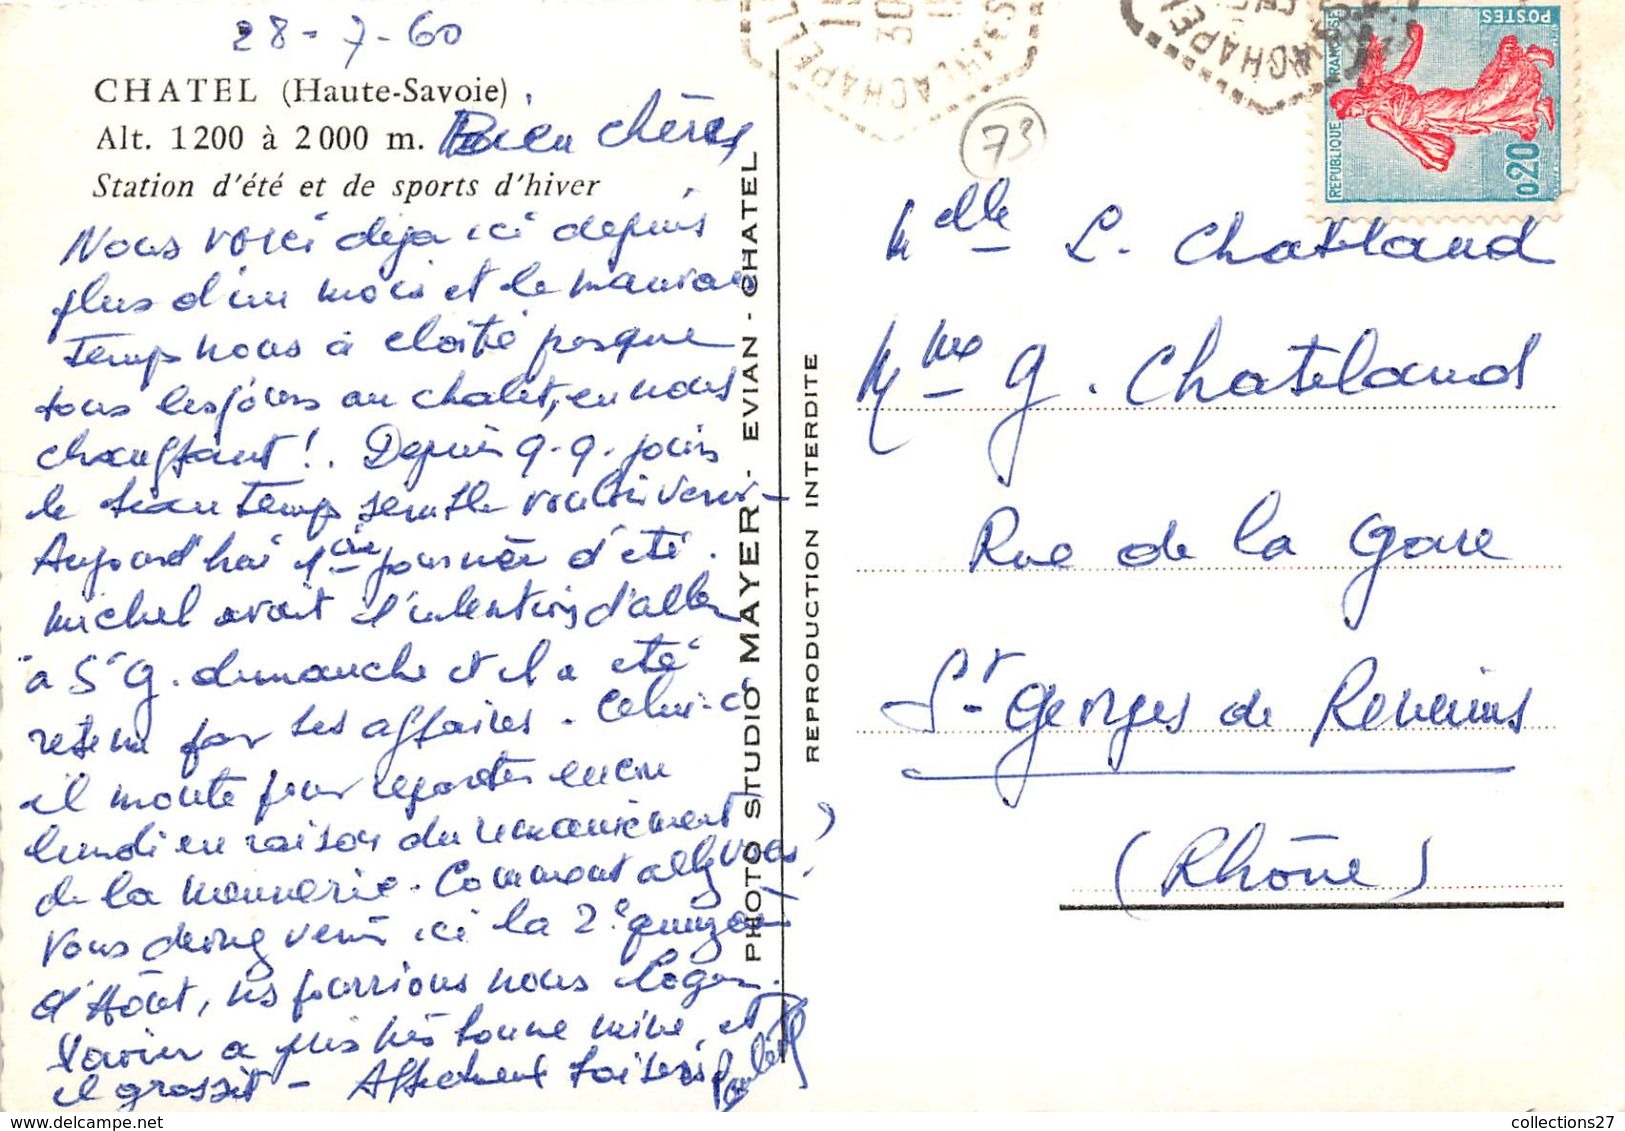 28-7-60
CHATEL (Haute-Savoie)
Alt. 1200 à 2000 m. Bien chères
Station d'été et de sports d'hiver
Nous voici déjà ici depuis
plus d'un mois et le mauvais
temps nous a cloîtré presque
tous les jours au chalet, en nous
chauffant ! . Depuis q. q. jours
le beau temps semble vouloir venir -
Aujourd'hui 1ère journée d'été .
Michel avait l'intention d'aller
à St G. dimanche et il a été
retenu par ses affaires - Celui-ci
il monte pour repartir encore
lundi en raison du remaniement
de la monnerie - Comment allez vous ?
Vous devriez venir ici la 2e quinzaine
d'Août, ns pourrions nous loger.
Xavier a pris très bonne mine, et
il grossit - Affectueux baisers
PHOTO STUDIO MAYER - EVIAN - CHATEL
REPRODUCTION INTERDITE
LACHAPELL
30
LACHAPEL
REPUBLIQUE FRANÇAISE
POSTES
0,20
73
Melle L. Chatelard
Mme G. Chatelard
Rue de la Gare
St Georges de Reneins
(Rhône)
collections27